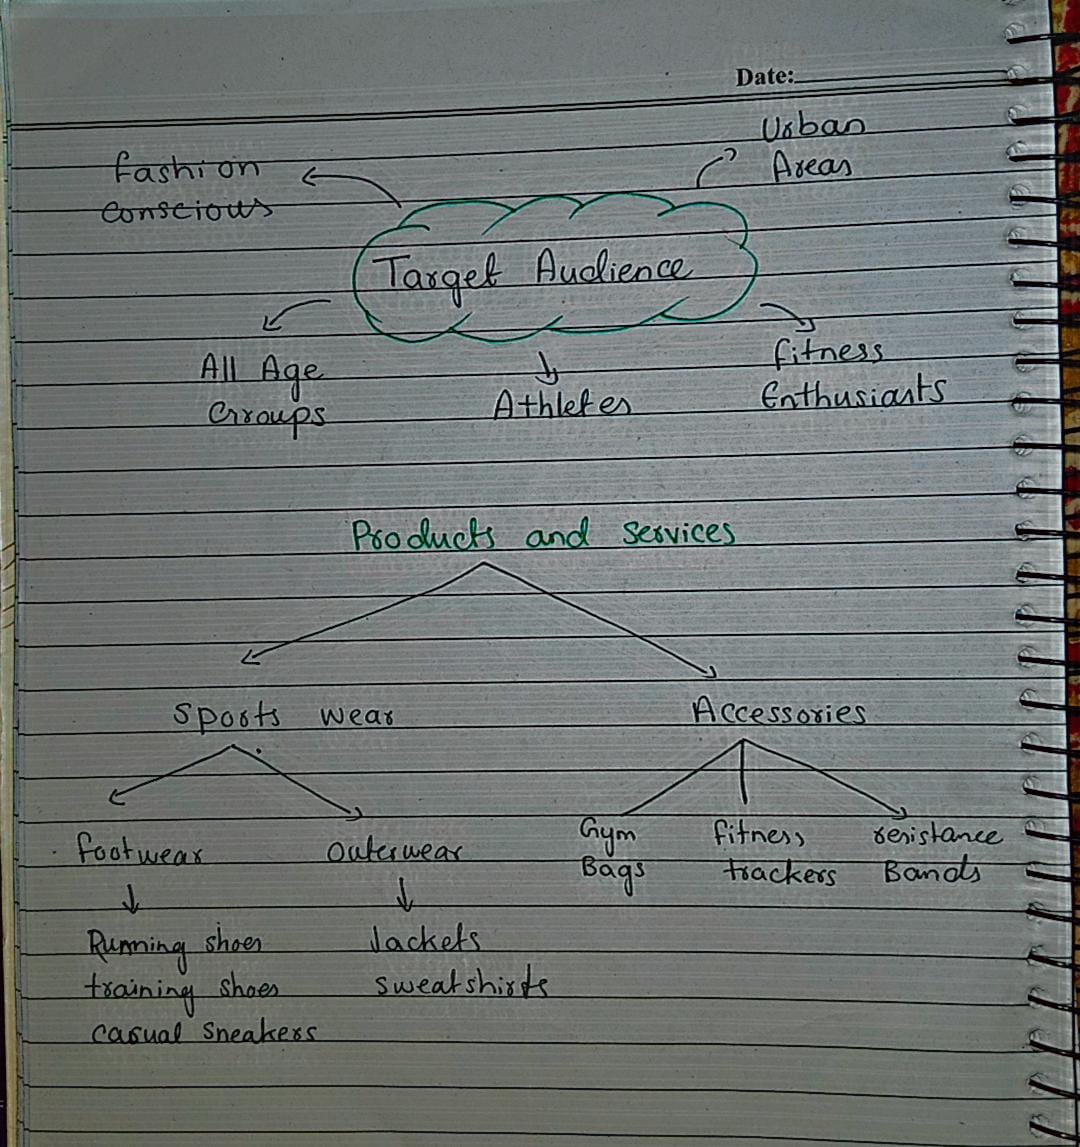 Date:
Urban
Areas
fashion
conscious
Target Audience
All Age
Groups
Athletes
fitness
Enthusiasts
Products and services
Sports wear
Accessories
footwear
outerwear
Gym
Bags
fitness
trackers
resistance
Bands
Running shoes
training shoes
casual sneakers
Jackets
sweatshirts